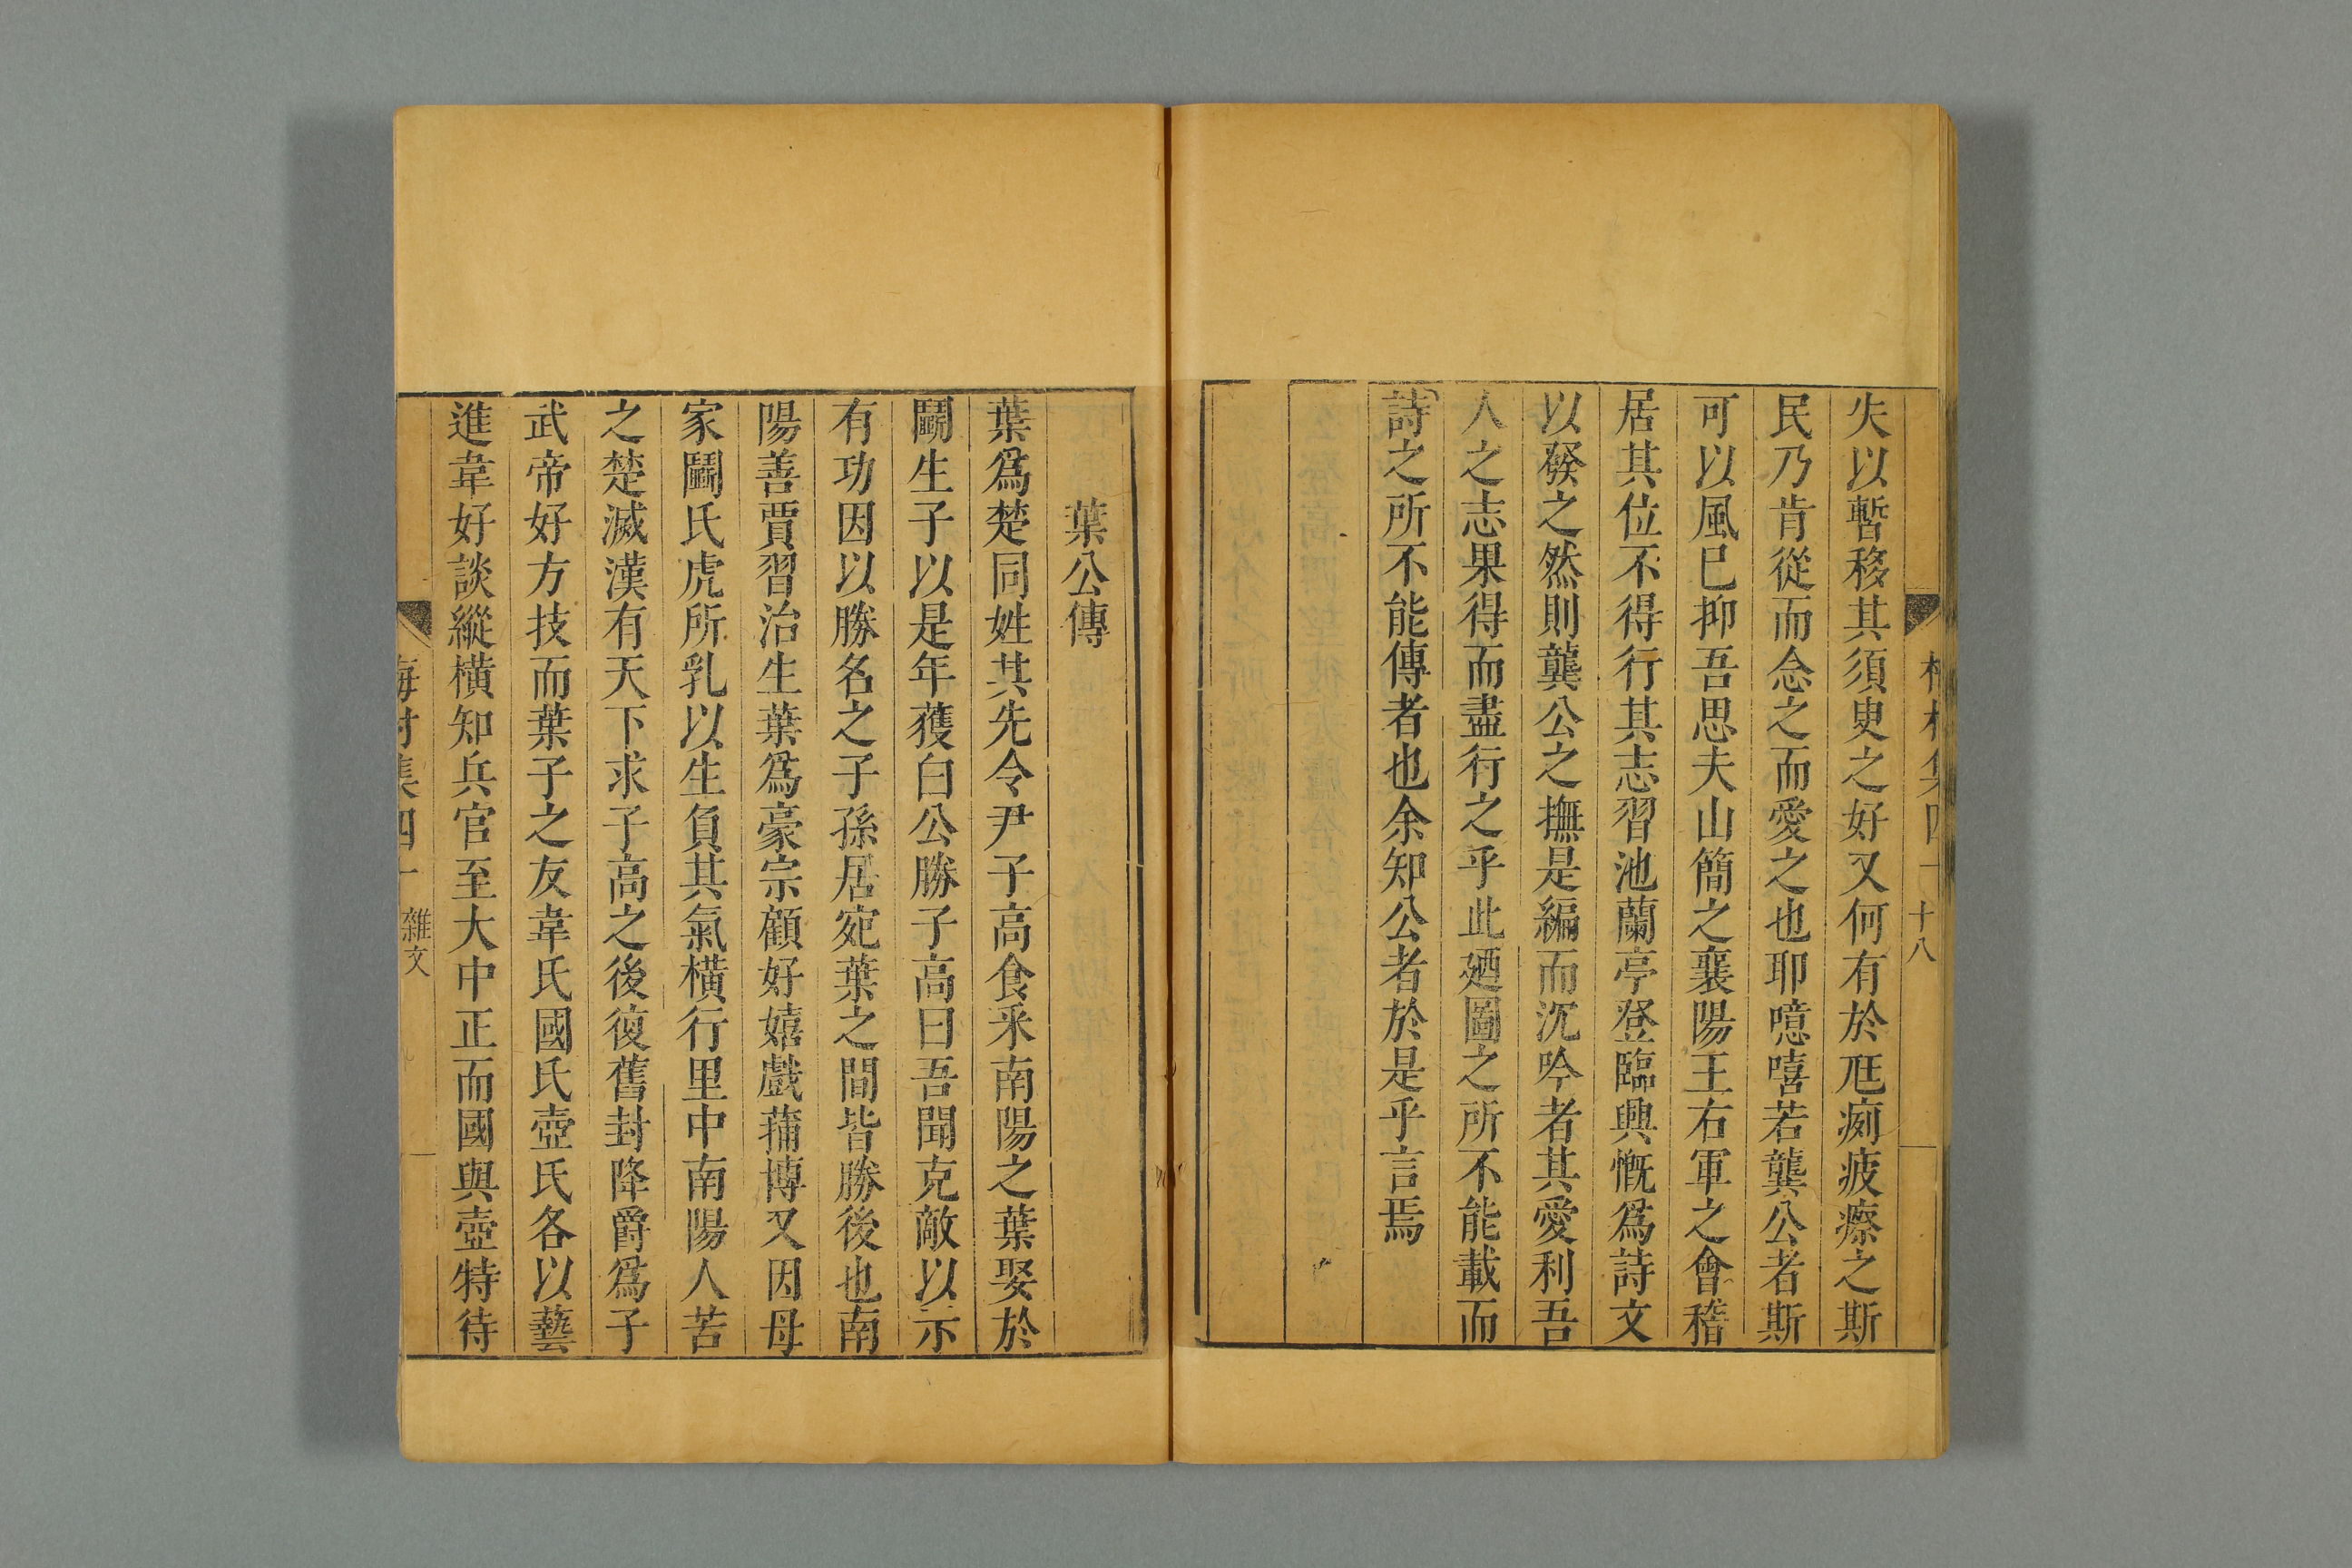 失以暫移其須臾之好又何有於尫痾疲瘵之斯
民乃肯從而念之而愛之也耶噫嘻若龔公者斯
可以風巳抑吾思夫山簡之襄陽王右軍之會稽
居其位不得行其志習池蘭亭登臨興慨爲詩文
以發之然則龔公之撫是編而沉吟者其愛利吾
人之志果得而盡行之乎此廼圖之所不能載而
詩之所不能傳者也余知公者於是乎言焉
十八
葉公傳
葉爲楚同姓其先令尹子高食采南陽之葉娶於
鬭生子以是年獲白公勝子高曰吾聞克敵以示
有功因以勝名之子孫居宛葉之間皆勝後也南
陽善賈習治生葉爲豪宗顧好嬉戲蒱博又因母
家鬭氏虎所乳以生負其氣橫行里中南陽人苦
之楚滅漢有天下求子高之後復舊封降爵爲子
武帝好方技而葉子之友韋氏國氏壺氏各以藝
進韋好談縱橫知兵官至大中正而國與壺特待
梅村集四十 雜文